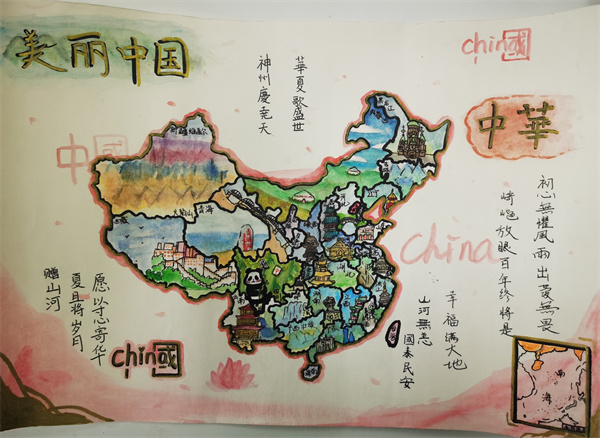 美丽中国
chin國
中華
華夏歌盛世
神州慶堯天
中國
China
初心無懼風雨出發無畏
崎嶇放眼百年終將是
幸福滿大地
山河無恙
國泰民安
愿以寸心寄华
夏且将岁月
赠山河
chin國
南海